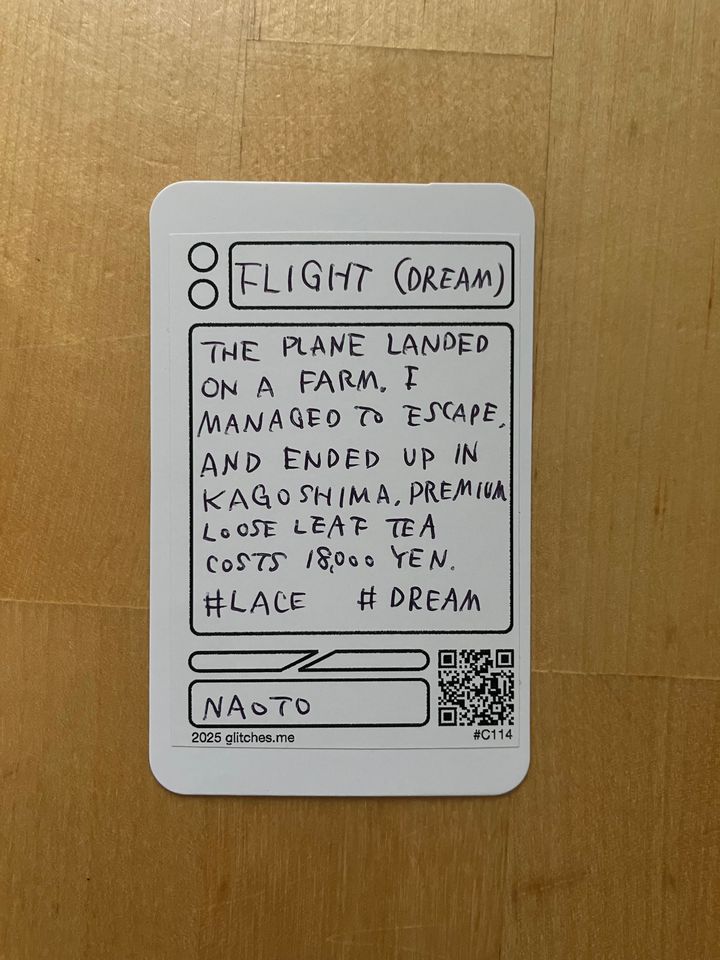 FLIGHT (DREAM)
THE PLANE LANDED
ON A FARM. I
MANAGED TO ESCAPE,
AND ENDED UP IN
KAGOSHIMA. PREMIUM
LOOSE LEAF TEA
COSTS 18,000 YEN.
#LACE # DREAM
NAOTO
2025 glitches.me #C114